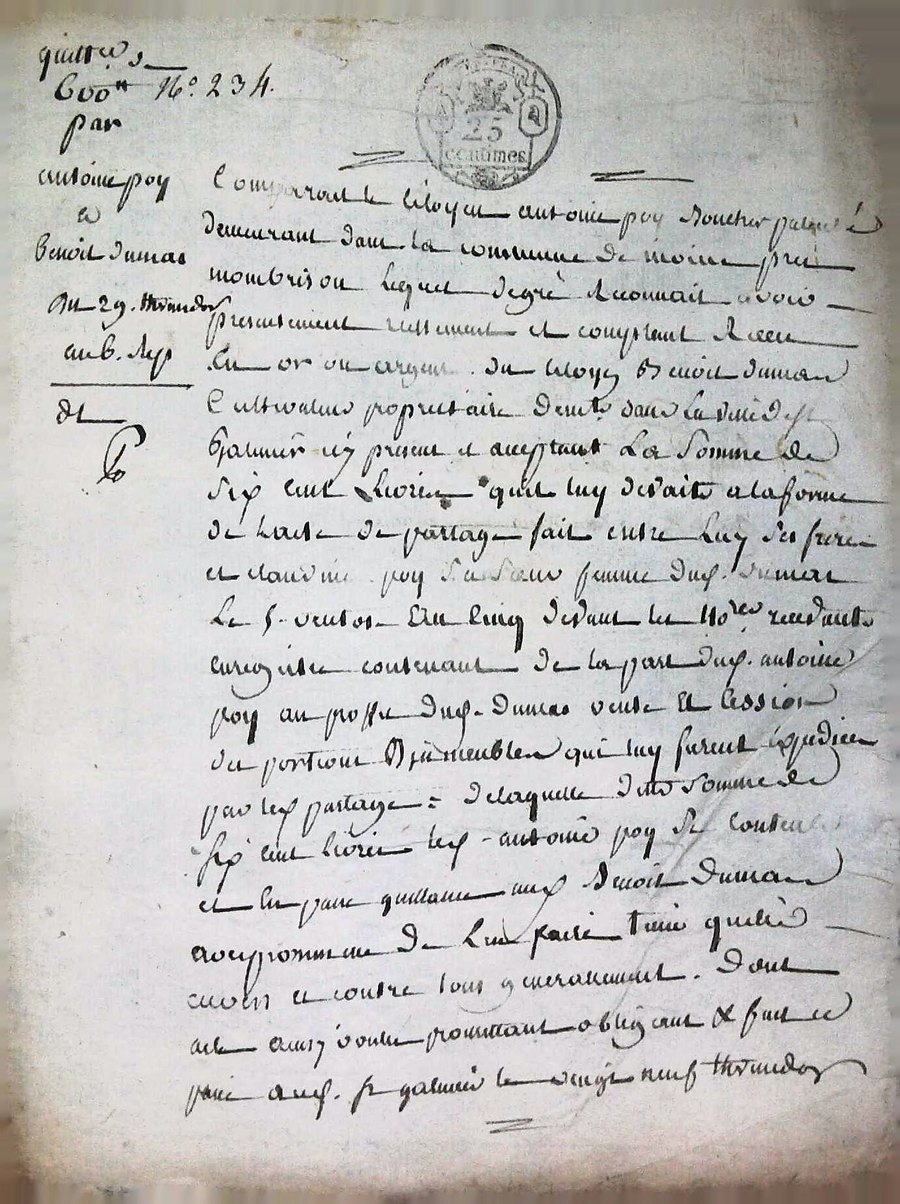 quittce de
600ll No. 234.
par
antoine poy
a
Benoit Dumas
Du 29. thermidor
an 6. Rep
dt
25
centimes
Comparait le Citoyen antoine poy Boucher
demeurant dans la commune de moin pres
mombrison lequel degrè Reconnait avoir
presentement reellement et comptant Receu
En or ou argent du Citoyen Benoit dumas
Cultivateur proprietaire demt. dans la ville de St
Galmier icy present et aceptant La Somme de
Six Cent Livres quil luy devait a la forme
de lacte de partage fait entre Luy Ses freres
et claudine poy Sa Soeur femme dud. dumas
Le 5. ventose Lan Cinq devant les nores recevants
enregistré contenant de la part dud. antoine
poy au proffit dud. Dumas vente Et Cession
des portions D'immeubles qui luy furent Expediees
par led partage = de laquelle ditte Somme de
six Cent livres led. antoine poy Se Contente
et En passe quittance aud Benoit Dumas
avec promesse de Len faire Tenir quitte
envers et contre tous generalement. Dont
acte ainsy voulu promettant obligeant & fait et
passé aud. St galmier le vingt neuf thermidor